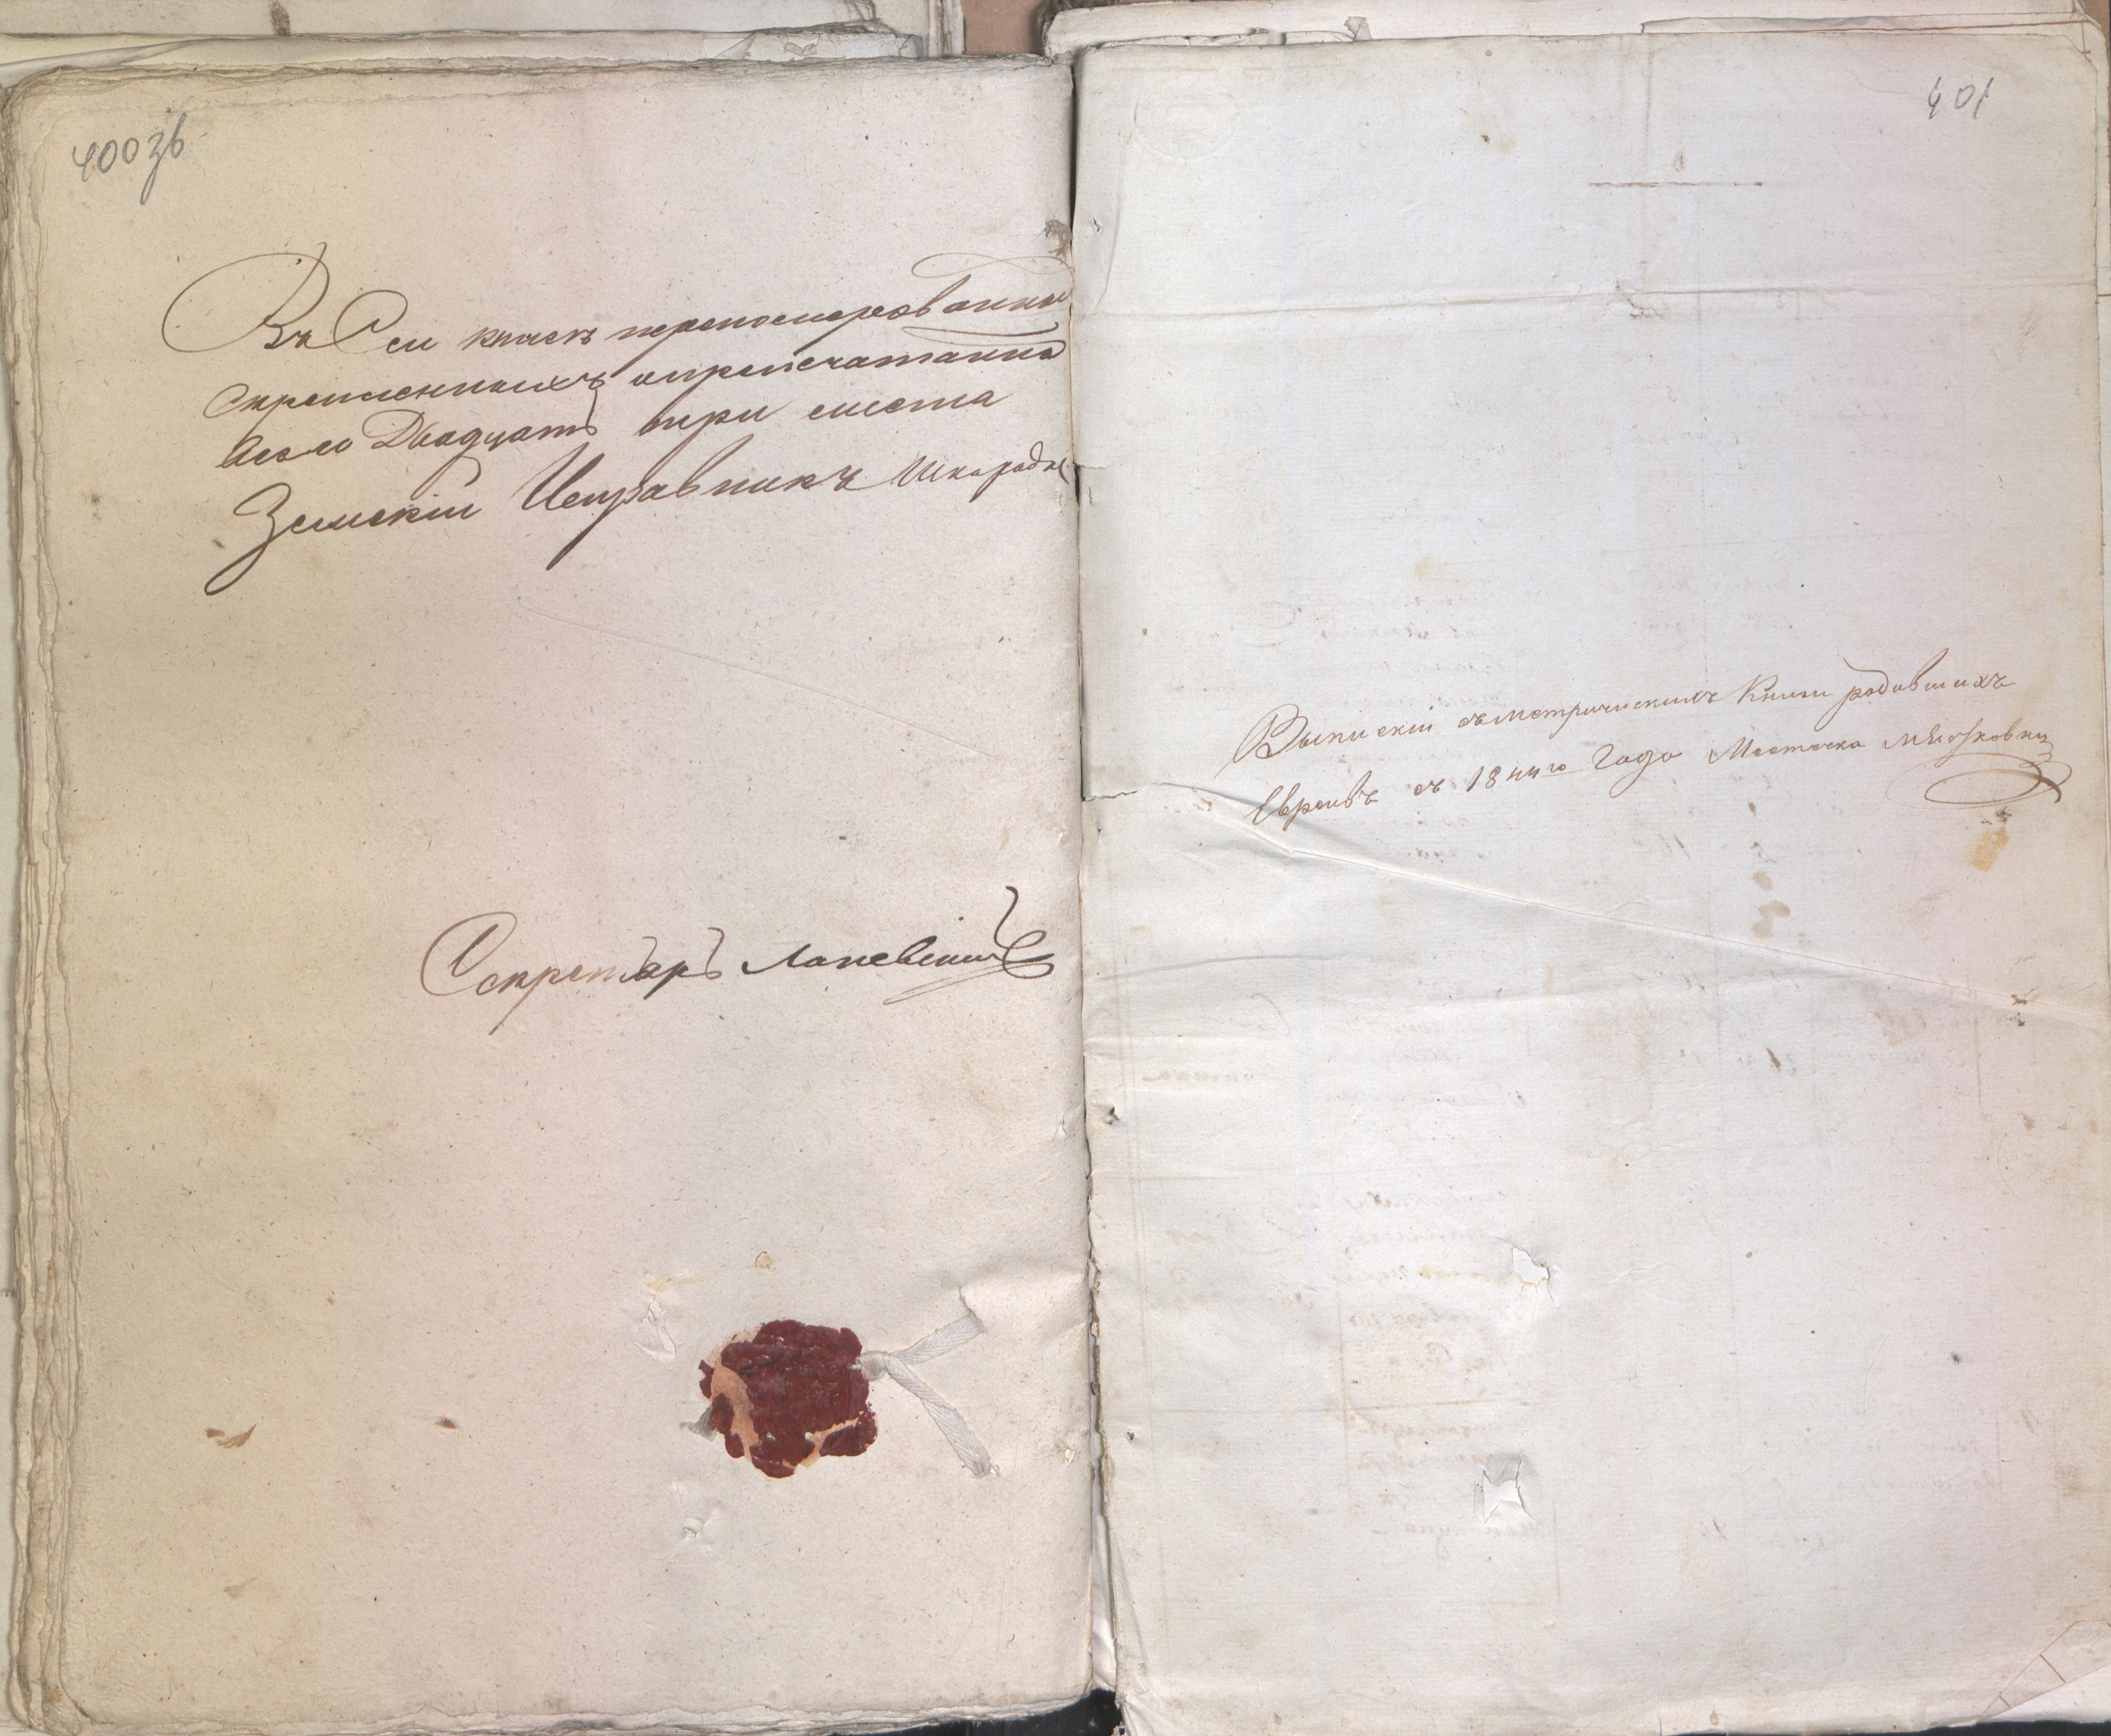 400 зв
Въ Сей книге переномерованны
скрепленныхъ и препечатанно
всего Двадцать три листа
Земскій Исправникъ
Секретарь
401
Выписки съ метрическихъ Книги родившихъ
Евреивъ съ 1844го Года Местечка